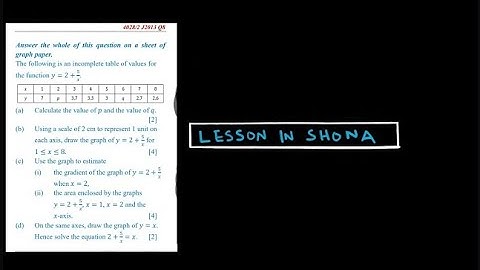 4028/2 J2013 Q8
Answer the whole of this question on a sheet of
graph paper.
The following is an incomplete table of values for
the function y = 2 + 5/x.
x 1 2 3 4 5 6 7 8
y 7 p 3.7 3.3 3 q 2.7 2.6
(a) Calculate the value of p and the value of q.
[2]
(b) Using a scale of 2 cm to represent 1 unit on
each axis, draw the graph of y = 2 + 5/x for
1 ≤ x ≤ 8. [4]
(c) Use the graph to estimate
(i) the gradient of the graph of y = 2 + 5/x
when x = 2,
(ii) the area enclosed by the graphs
y = 2 + 5/x, x = 1, x = 2 and the
x-axis. [4]
(d) On the same axes, draw the graph of y = x.
Hence solve the equation 2 + 5/x = x. [2]
LESSON IN SHONA